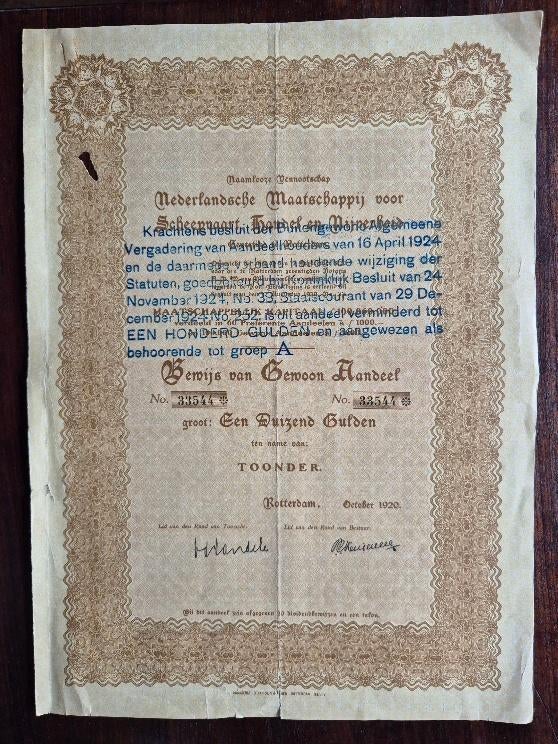 Naamlooze Vennootschap
Nederlandsche Maatschappij voor
Scheepvaart, Handel en Nijverheid
Krachtens besluit der Buitengewone Algemeene
Vergadering van Aandeelhouders van 16 April 1924
en de daarmede verband houdende wijziging der
Statuten, goedgekeurd bij Koninklijk Besluit van 24
November 1924, No. 33, Staatscourant van 29 De-
cember 1924 No. 252, is dit aandeel verminderd tot
EEN HONDERD GULDEN en aangewezen als
behoorende tot groep A
MAATSCHAPPELIJK KAPITAAL
verdeeld in 60 Preferente Aandeelen à ƒ 1000.—
Bewijs van Gewoon Aandeel
No. 33544 No. 33544
groot: Een Duizend Gulden
ten name van:
TOONDER.
Rotterdam, October 1920.
Lid van den Raad van Toezicht. Lid van den Raad van Bestuur.
Bij dit aandeel zijn afgegeven 20 dividendbewijzen en een talon.